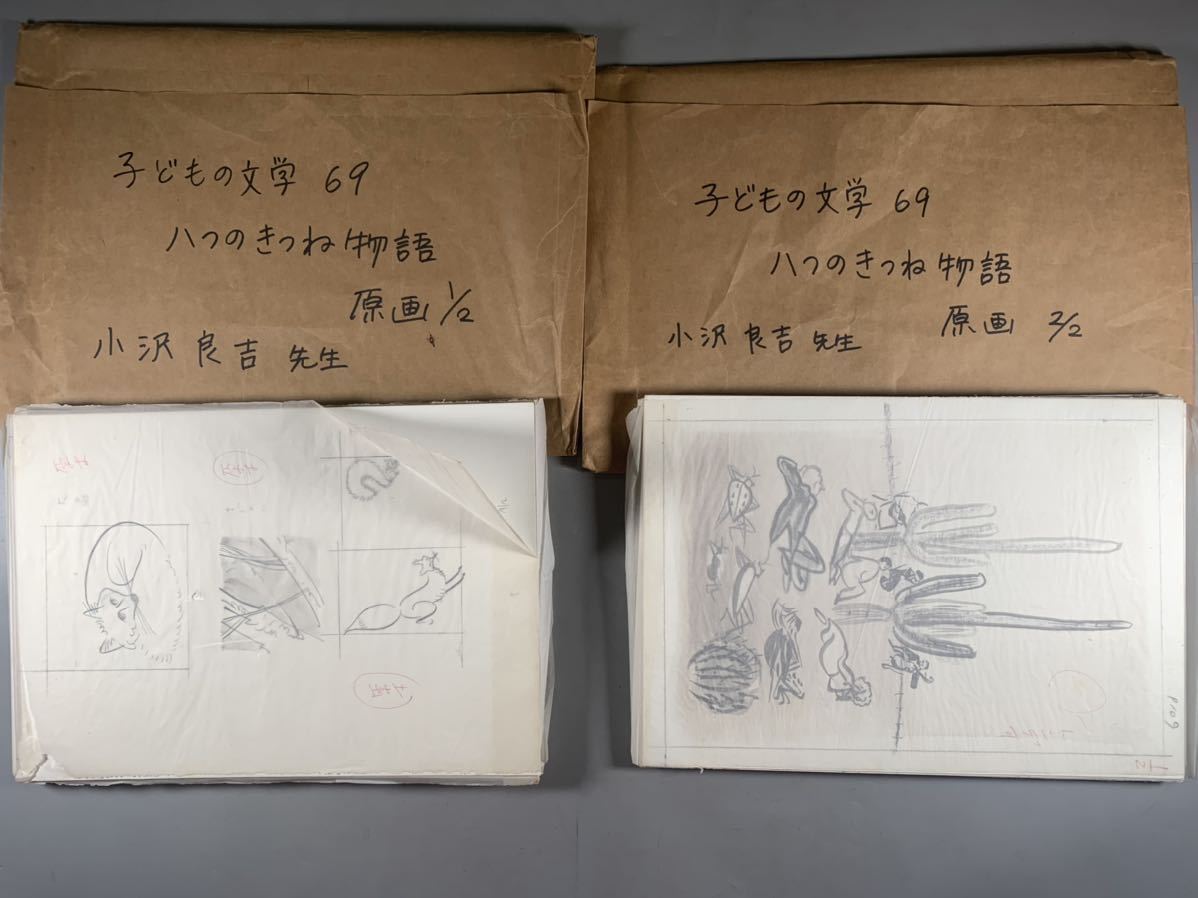 子どもの文学 69
八つのきつね物語
原画 1/2
小沢良吉 先生
子どもの文学 69
八つのきつね物語
原画 2/2
小沢良吉 先生
P109